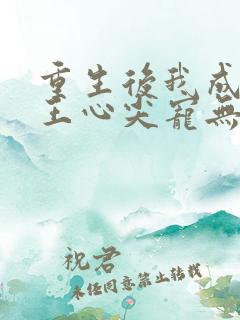 重生後我成
王心尖寵無
祝君
未任同意禁止转载